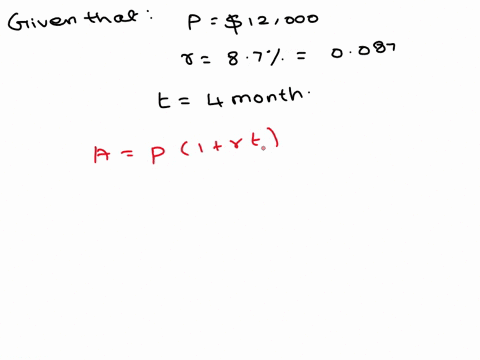 Given that: P = $12,000
r = 8.7% = 0.087
t = 4 month.
A = P (1 + r t)